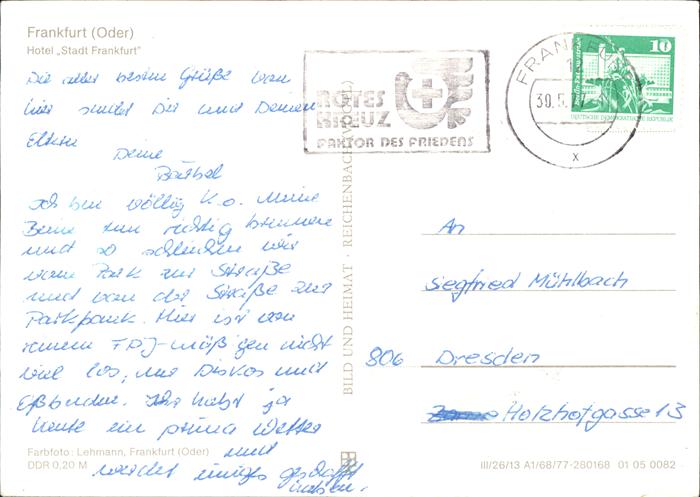 Frankfurt (Oder)
Hotel „Stadt Frankfurt"
Die aller besten Grüße von
hier sendet Dir und Deinen
Eltern
Deine
Bärbel
Ich bin völlig k.o. Meine
Beine tun richtig brennen
und so schleichen wir
vom Park zur Straße
und von der Straße zur
Parkbank. Hier ist von
einem FDJ-mäßigen nicht
viel los, nur Diskos und
Eßbuden. Ihr habt ja
heute ein prima Wetter
und
werdet einiges geschafft
haben.
Farbfoto: Lehmann, Frankfurt (Oder)
DDR 0,20 M
BILD UND HEIMAT · REICHENBACH (VOGTL)
ROTES
KREUZ
FAKTOR DES FRIEDENS
FRANKFURT
1
30.5.
x
10
DEUTSCHE DEMOKRATISCHE REPUBLIK
An
Siegfried Mühlbach
806 Dresden
Holzhofgasse 13
III/26/13 A1/68/77-280168 01 05 0082